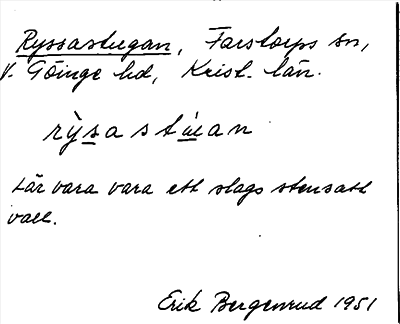 Ryssastugan, Farstorps sn,
V. Göinge hd, Krist. län.
rỳsastúan
Lär vara vara ett slags stensatt
vall.
Erik Bergenrud 1951